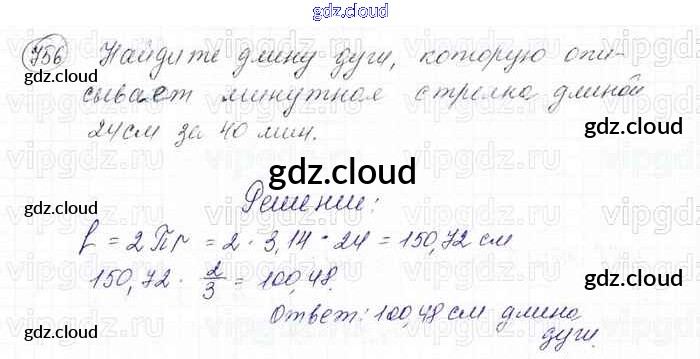 gdz.cloud
756 Найдите длину дуги, которую опи-
gdz.cloud
сывает минутная стрелка длиной
24см за 40 мин.
gdz.cloud
gdz.cloud
Решение:
gdz.cloud
L = 2Пr = 2 · 3,14 · 24 = 150,72 см
150,72 · 2/3 = 100,48.
gdz.cloud
Ответ: 100,48 см длина
дуги.
gdz.cloud